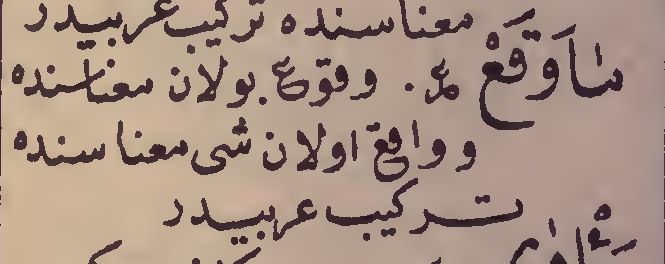 معناسنده تركيب عربيدر
مَاوَقَعْ مر. وقوع بولان معناسنده
و واقع اولان شى معناسنده
تركيب عربيدر